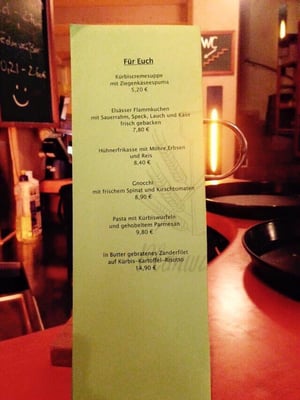 WC
0,2l - 2
Für Euch
Kürbiscremesuppe
mit Ziegenkäseespuma
5,20 €
Elsässer Flammkuchen
mit Sauerrahm, Speck, Lauch und Käse
frisch gebacken
7,80 €
Hühnerfrikasse mit Möhre,Erbsen
und Reis
8,40 €
Gnocchi
mit frischem Spinat und Kirschtomaten
8,90 €
Pasta mit Kürbiswürfeln
und gehobeltem Parmesan
9,80 €
In Butter gebratenes Zanderfilet
auf Kürbis-Kartoffel-Risotto
14,90 €